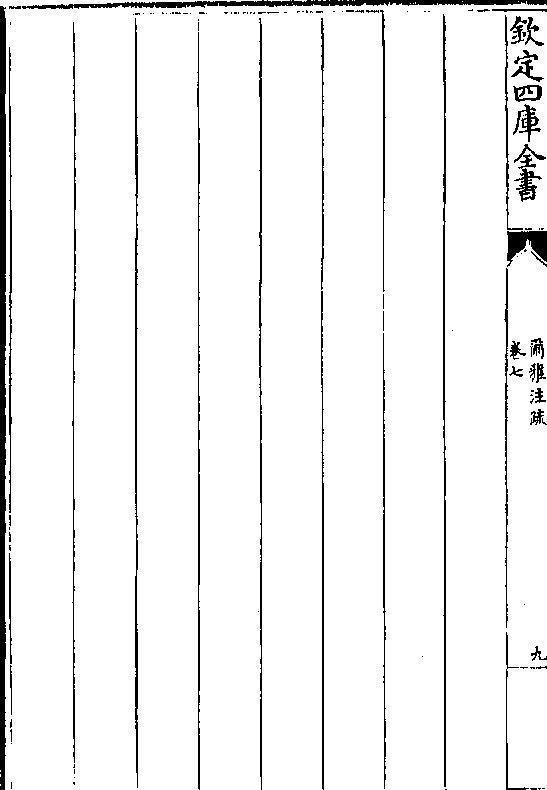 欽定四庫全書
爾雅注疏
卷七
九